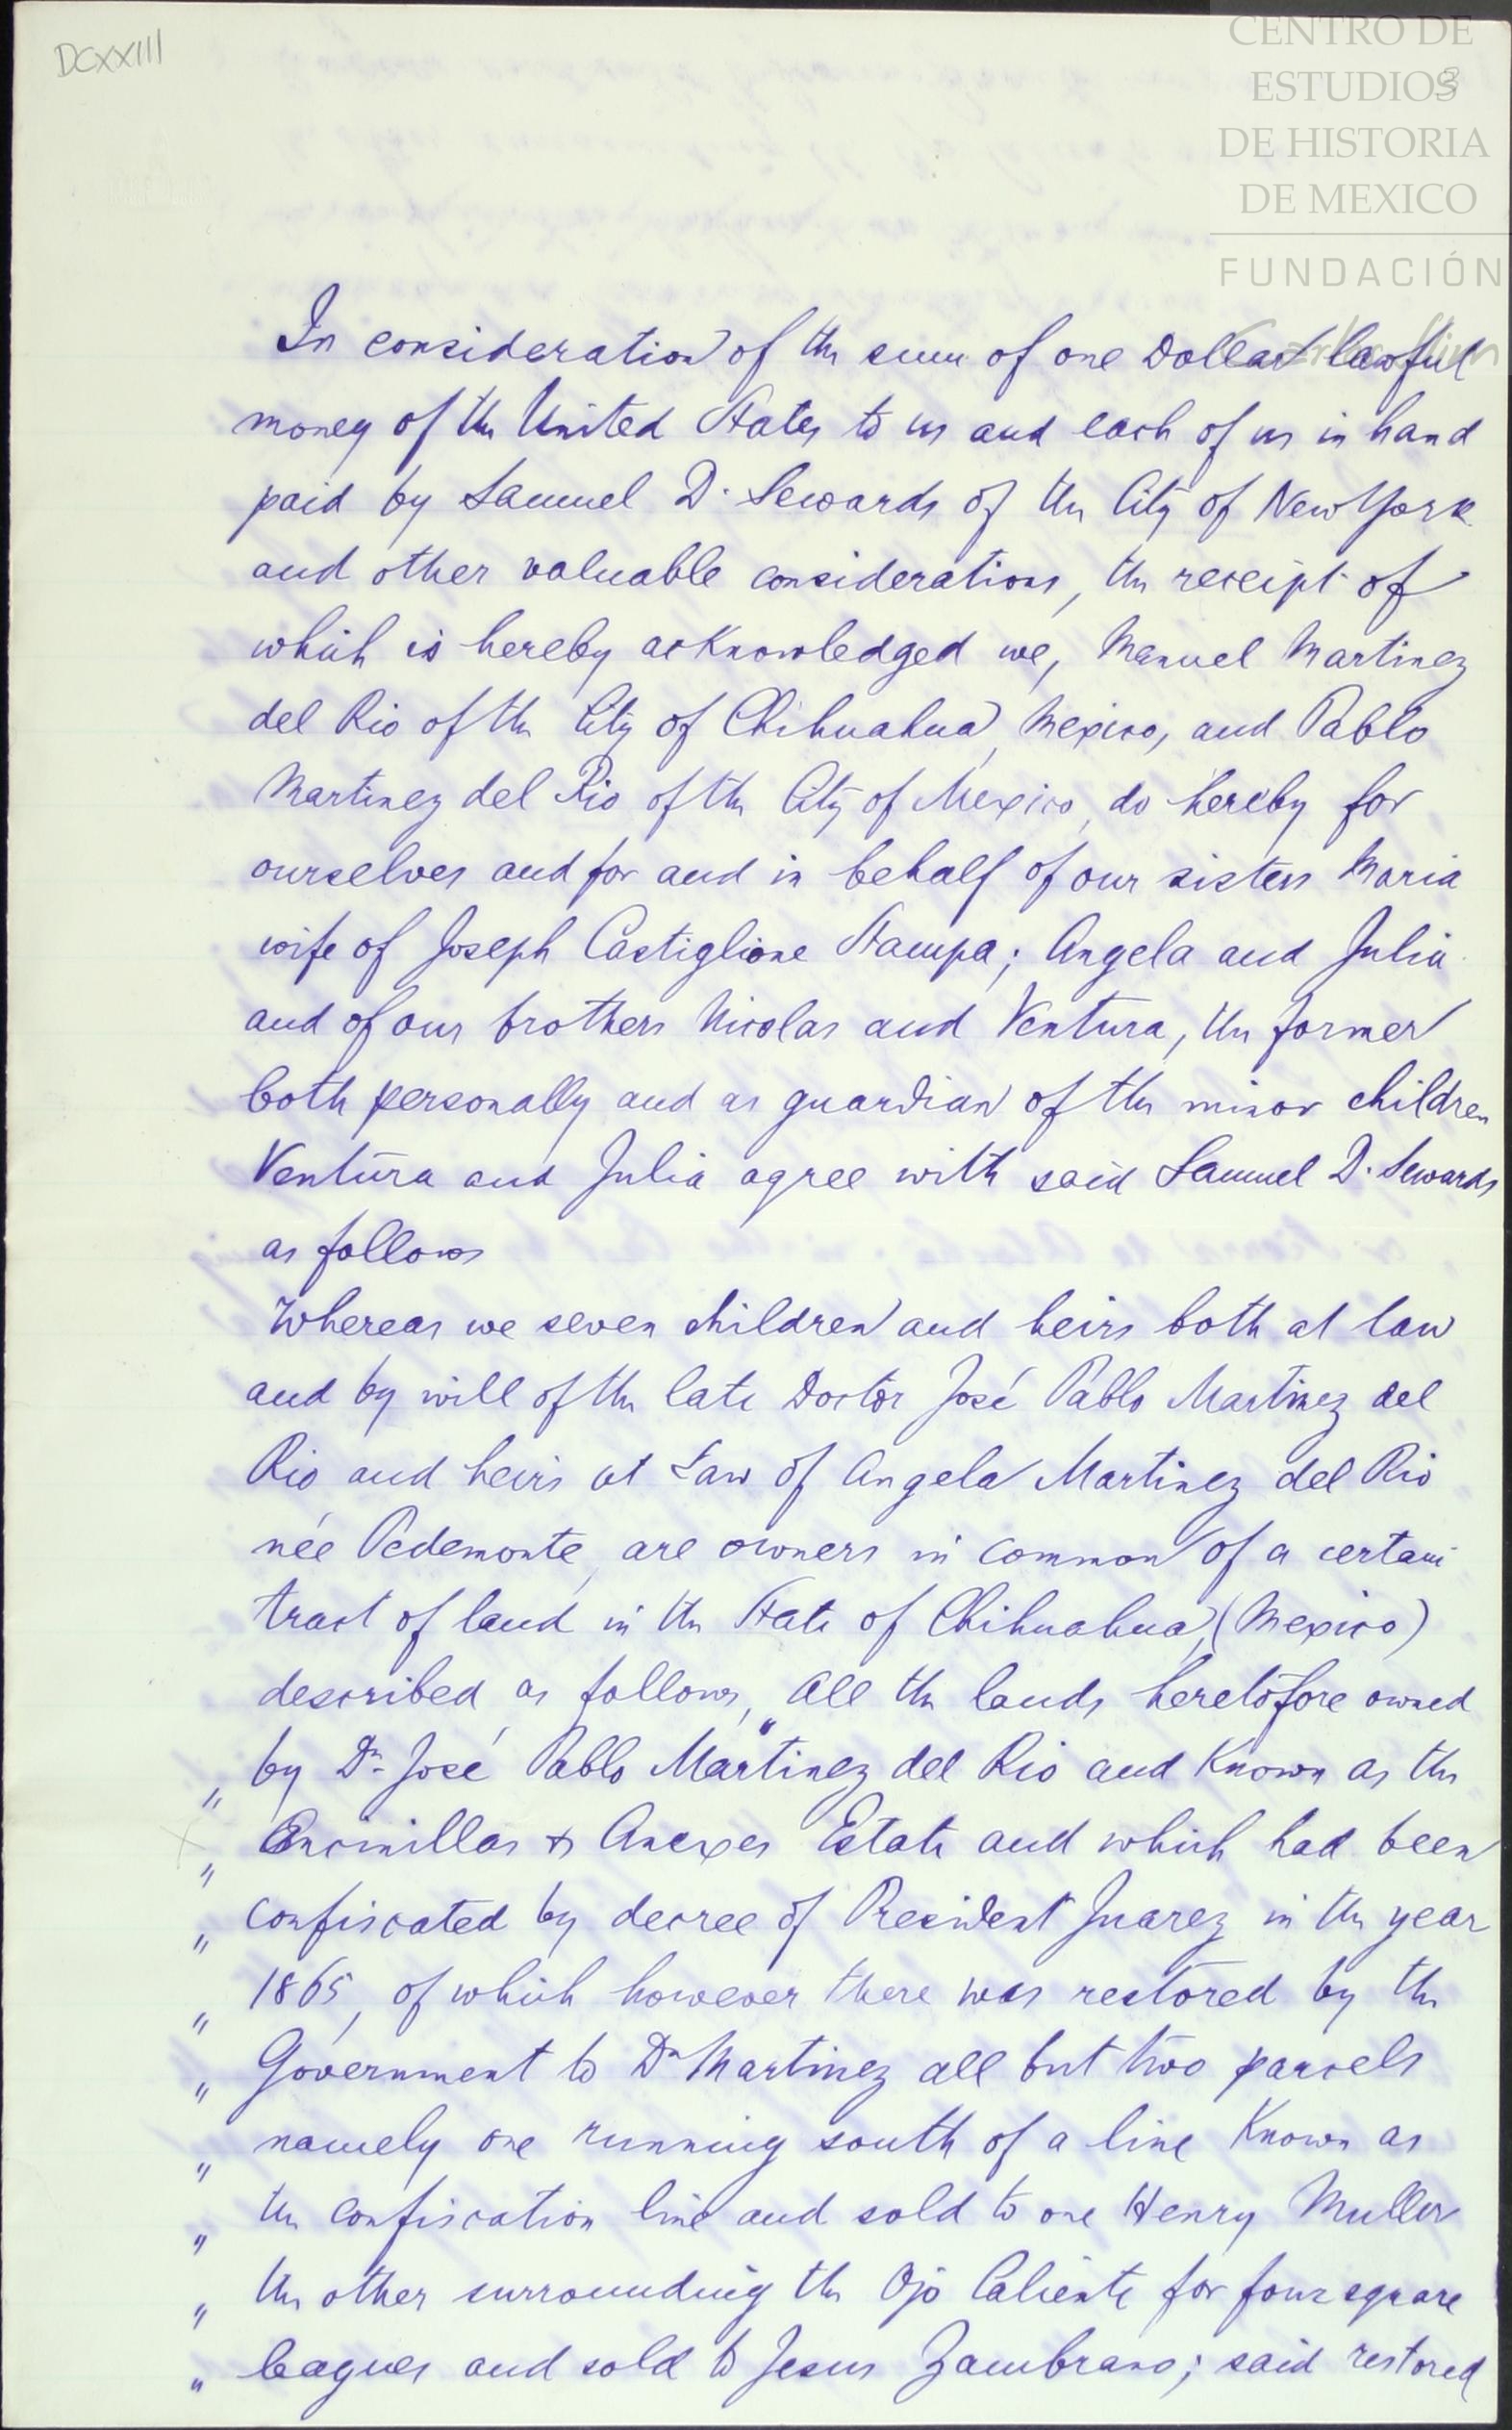 DCXXIII
CENTRO DE
ESTUDIOS
DE HISTORIA
DE MEXICO
FUNDACIÓN
3
In consideration of the sum of one Dollar lawful
money of the United States to us and each of us in hand
paid by Samuel D. Sewards of the City of New York
and other valuable considerations, the receipt of
which is hereby acknowledged we, Manuel Martinez
del Rio of the City of Chihuahua, Mexico, and Pablo
Martinez del Rio of the City of Mexico, do hereby for
ourselves and for and in behalf of our sisters Maria
wife of Joseph Castiglione Stampa; Angela and Julia
and of our brothers Nicolas and Ventura, the former
both personally and as guardian of the minor children
Ventura and Julia agree with said Samuel D. Sewards
as follows
Whereas we seven children and heirs both at law
and by will of the late Doctor José Pablo Martinez del
Rio and heirs at Law of Angela Martinez del Rio
née Pedemonte, are owners in common of a certain
tract of land in the State of Chihuahua, (Mexico)
described as follows, "All the lands heretofore owned
" by Dn José Pablo Martinez del Rio and Known as the
" Encinillas & Anexes Estate and which had been
" confiscated by decree of President Juarez in the year
" 1865, of which however there was restored by the
" Government to Dn Martinez all but two parcels
" namely one running south of a line Known as
" the confiscation line and sold to one Henry Muller
" the other surrounding the Ojo Caliente for four square
" leagues and sold to Jesus Zambrano; said restored